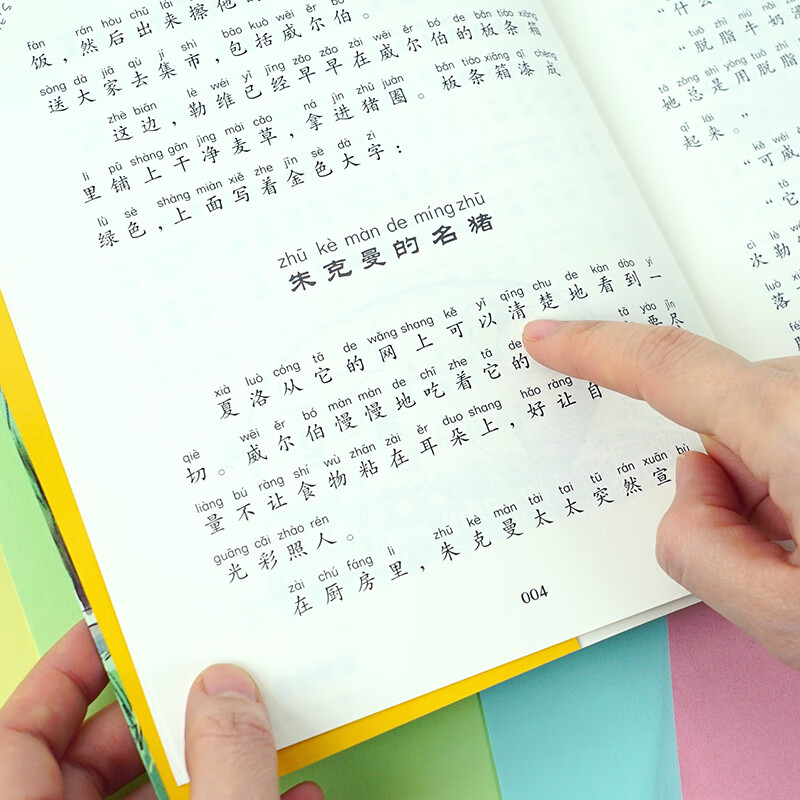 fàn rán hòu chū lái
饭，然后出来擦他
sòng dà jiā qù jí shì bāo kuò wēi ěr bó
送大家去集市，包括威尔伯。
zhè biān lè wéi yǐ jīng zǎo zǎo zài wēi ěr bó de bǎn tiáo xiāng
这边，勒维已经早早在威尔伯的板条箱
li pū shàng gān jìng mài cǎo ná jìn zhū juàn bǎn tiáo xiāng qī chéng
里铺上干净麦草，拿进猪圈。板条箱漆成
lǜ sè shàng miàn xiě zhe jīn sè dà zì
绿色，上面写着金色大字：
zhū kè màn de míng zhū
朱克曼的名猪
xià luò cóng tā de wǎng shang kě yǐ qīng chu de kàn dào yí
夏洛从它的网上可以清楚地看到一
qiè wēi ěr bó màn màn de chī zhe tā de tā yào jìn
切。威尔伯慢慢地吃着它的 要尽
liàng bú ràng shí wù zhān zài ěr duo shang hǎo ràng
量不让食物粘在耳朵上，好让自
guāng cǎi zhào rén
光彩照人。
zài chú fáng li zhū kè màn tài tai tū rán xuān bù
在厨房里，朱克曼太太突然宣
004
“什么
tuō zhī niú nǎi
“脱脂牛奶
tā zǒng shì yòng tuō zhī
她总是用脱脂
qǐ lái
起来。”
kě wēi
“可威
tā
“它
cì lè
次勒
luò
落一